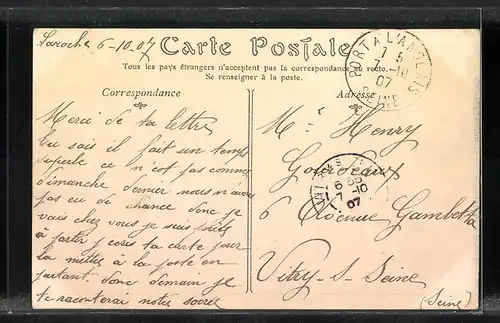 Laroche 6-10.07
Carte Postale
Tous les pays étrangers n'acceptent pas la correspondance au recto.
Se renseigner à la poste.
Correspondance
Adresse
PORT A L'ANGLAIS
7 5
7 -10
07
SEINE
Merci de ta lettre
tu sais il fait un temps
superbe ce n'est pas comme
dimanche dernier nous n'avons
pas eu de chance donc je
vais chez vous je suis prêt
à partir j'ecris ta carte pour
la mettre à la poste en
partant. donc demain je
te raconterai notre soirée
Mr Henry
Gourdeaux
6 35
7 -10
07
6 Avenue Gambetta
Vitry-s-Seine
(Seine)